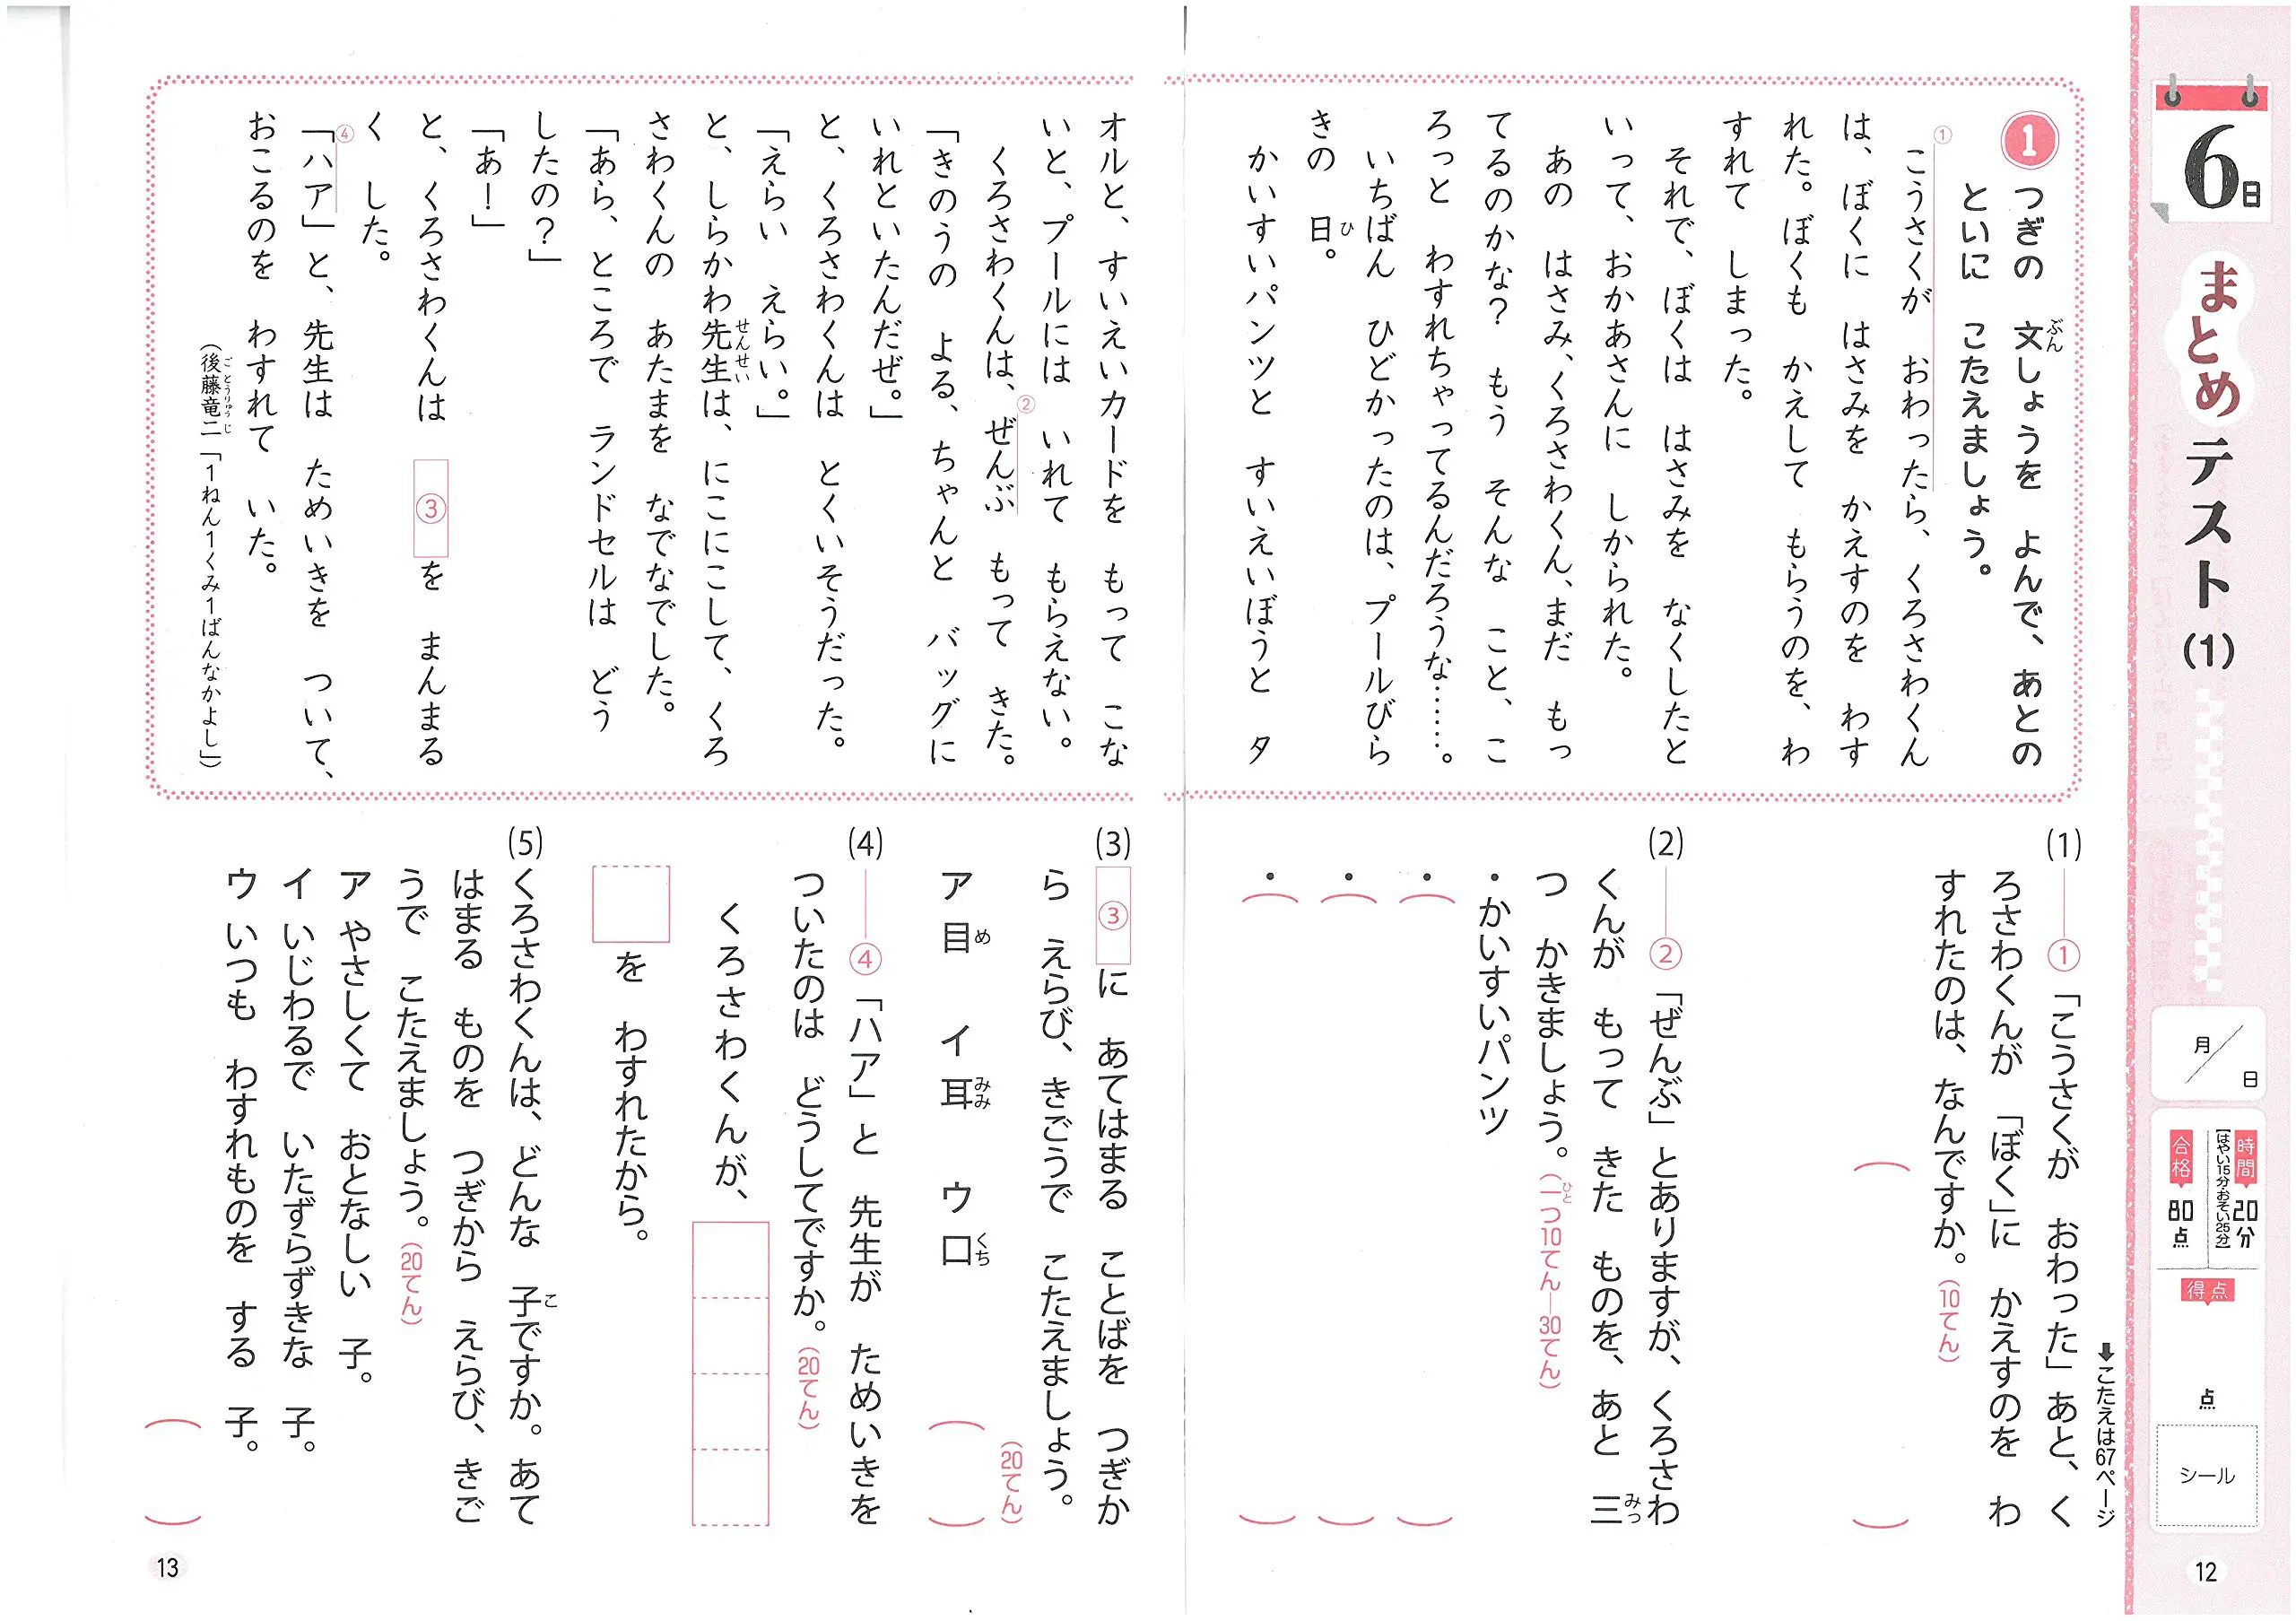 6日
まとめテスト(1)
月／日
時間 20分
【はやい15分・おそい25分】
合格 80点
得点
点
シール
➡こたえは67ページ
1 つぎの 文しょうを よんで、あとの
といに こたえましょう。
ぶん
①こうさくが おわったら、くろさわくん
は、ぼくに はさみを かえすのを わす
れた。ぼくも かえして もらうのを、わ
すれて しまった。
それで、ぼくは はさみを なくしたと
いって、おかあさんに しかられた。
あの はさみ、くろさわくん、まだ もっ
てるのかな? もう そんな こと、こ
ろっと わすれちゃってるんだろうな……。
いちばん ひどかったのは、プールびら
きの 日。
ひ
かいすいパンツと すいえいぼうと タ
オルと、すいえいカードを もって こな
いと、プールには いれて もらえない。
くろさわくんは、②ぜんぶ もって きた。
「きのうの よる、ちゃんと バッグに
いれといたんだぜ。」
と、くろさわくんは とくいそうだった。
「えらい えらい。」
と、しらかわ先生は、にこにこして、くろ
せんせい
さわくんの あたまを なでなでした。
「あら、ところで ランドセルは どう
したの?」
「あ!」
と、くろさわくんは ③を まんまる
く した。
④「ハア」と、先生は ためいきを ついて、
おこるのを わすれて いた。
(後藤竜二「1ねん1くみ1ばんなかよし」)
ごとうりゅうじ
(1) ―①「こうさくが おわった」あと、く
ろさわくんが 「ぼく」に かえすのを わ
すれたのは、なんですか。(10てん)
(2) ―②「ぜんぶ」とありますが、くろさわ
くんが もって きた ものを、あと 三
みっ
つ かきましょう。(一つ10てん―30てん)
ひと
・かいすいパンツ
・
・
・
(3) ③に あてはまる ことばを つぎか
ら えらび、きごうで こたえましょう。
(20てん)
ア 目 イ 耳 ウ 口
め みみ くち
(4) ―④「ハア」と 先生が ためいきを
ついたのは どうしてですか。(20てん)
くろさわくんが、
を わすれたから。
(5) くろさわくんは、どんな 子ですか。あて
こ
はまる ものを つぎから えらび、きご
うで こたえましょう。(20てん)
ア やさしくて おとなしい 子。
イ いじわるで いたずらずきな 子。
ウ いつも わすれものを する 子。
12
13